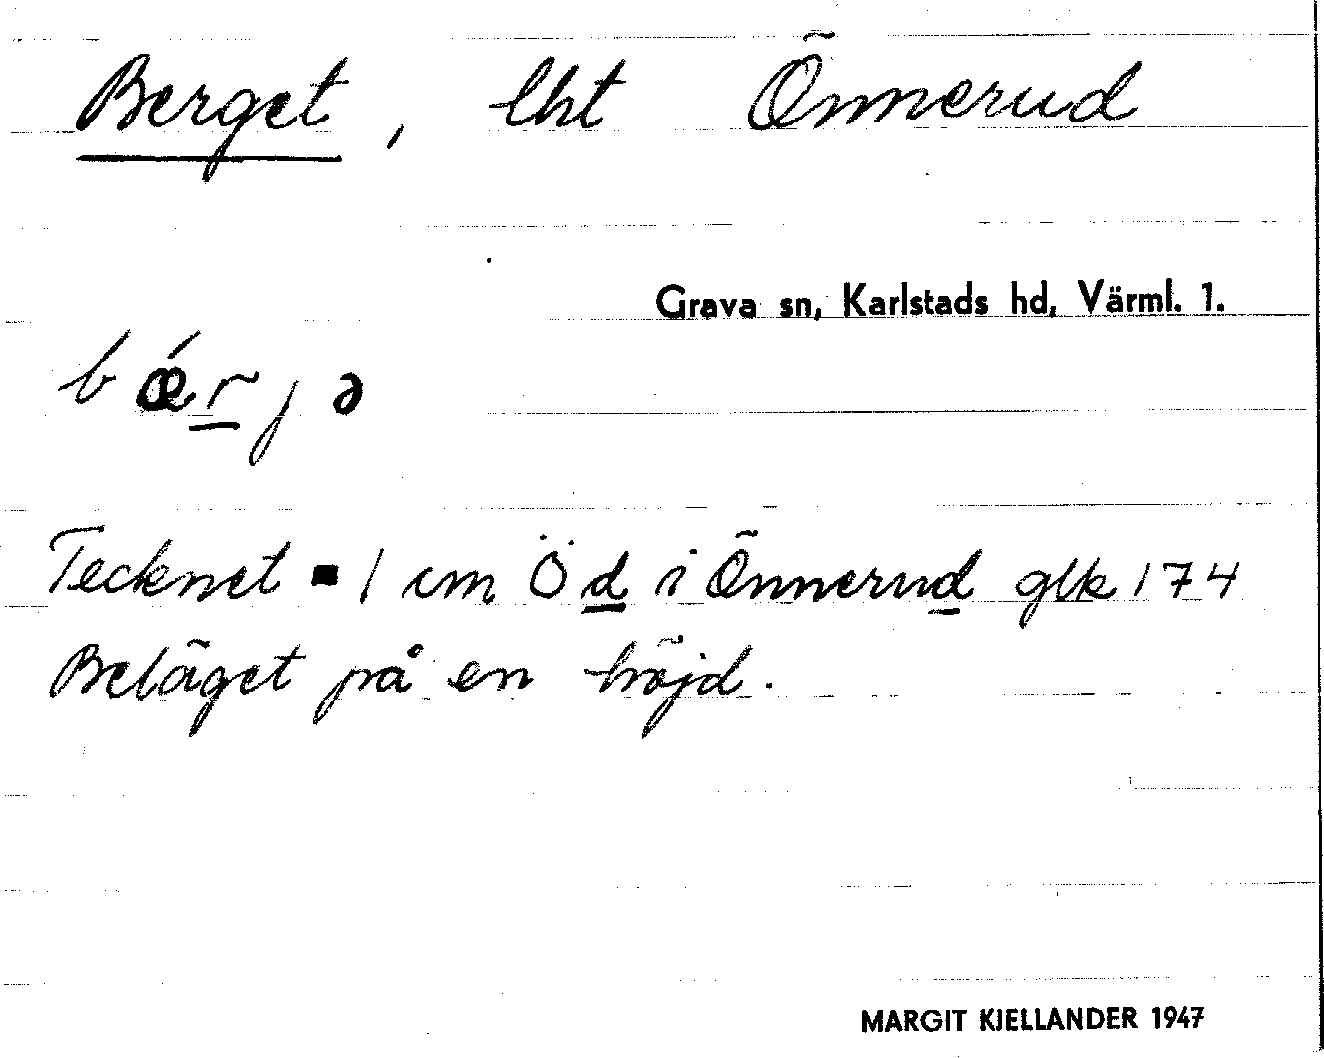 Berget, lht Önnerud
Grava sn, Karlstads hd, Värml. 1.
bǽr̲jə
Tecknet ▪ 1 cm Ö d̲ i Önnerud̲ glk 174
Beläget på en höjd.
MARGIT KJELLANDER 1947